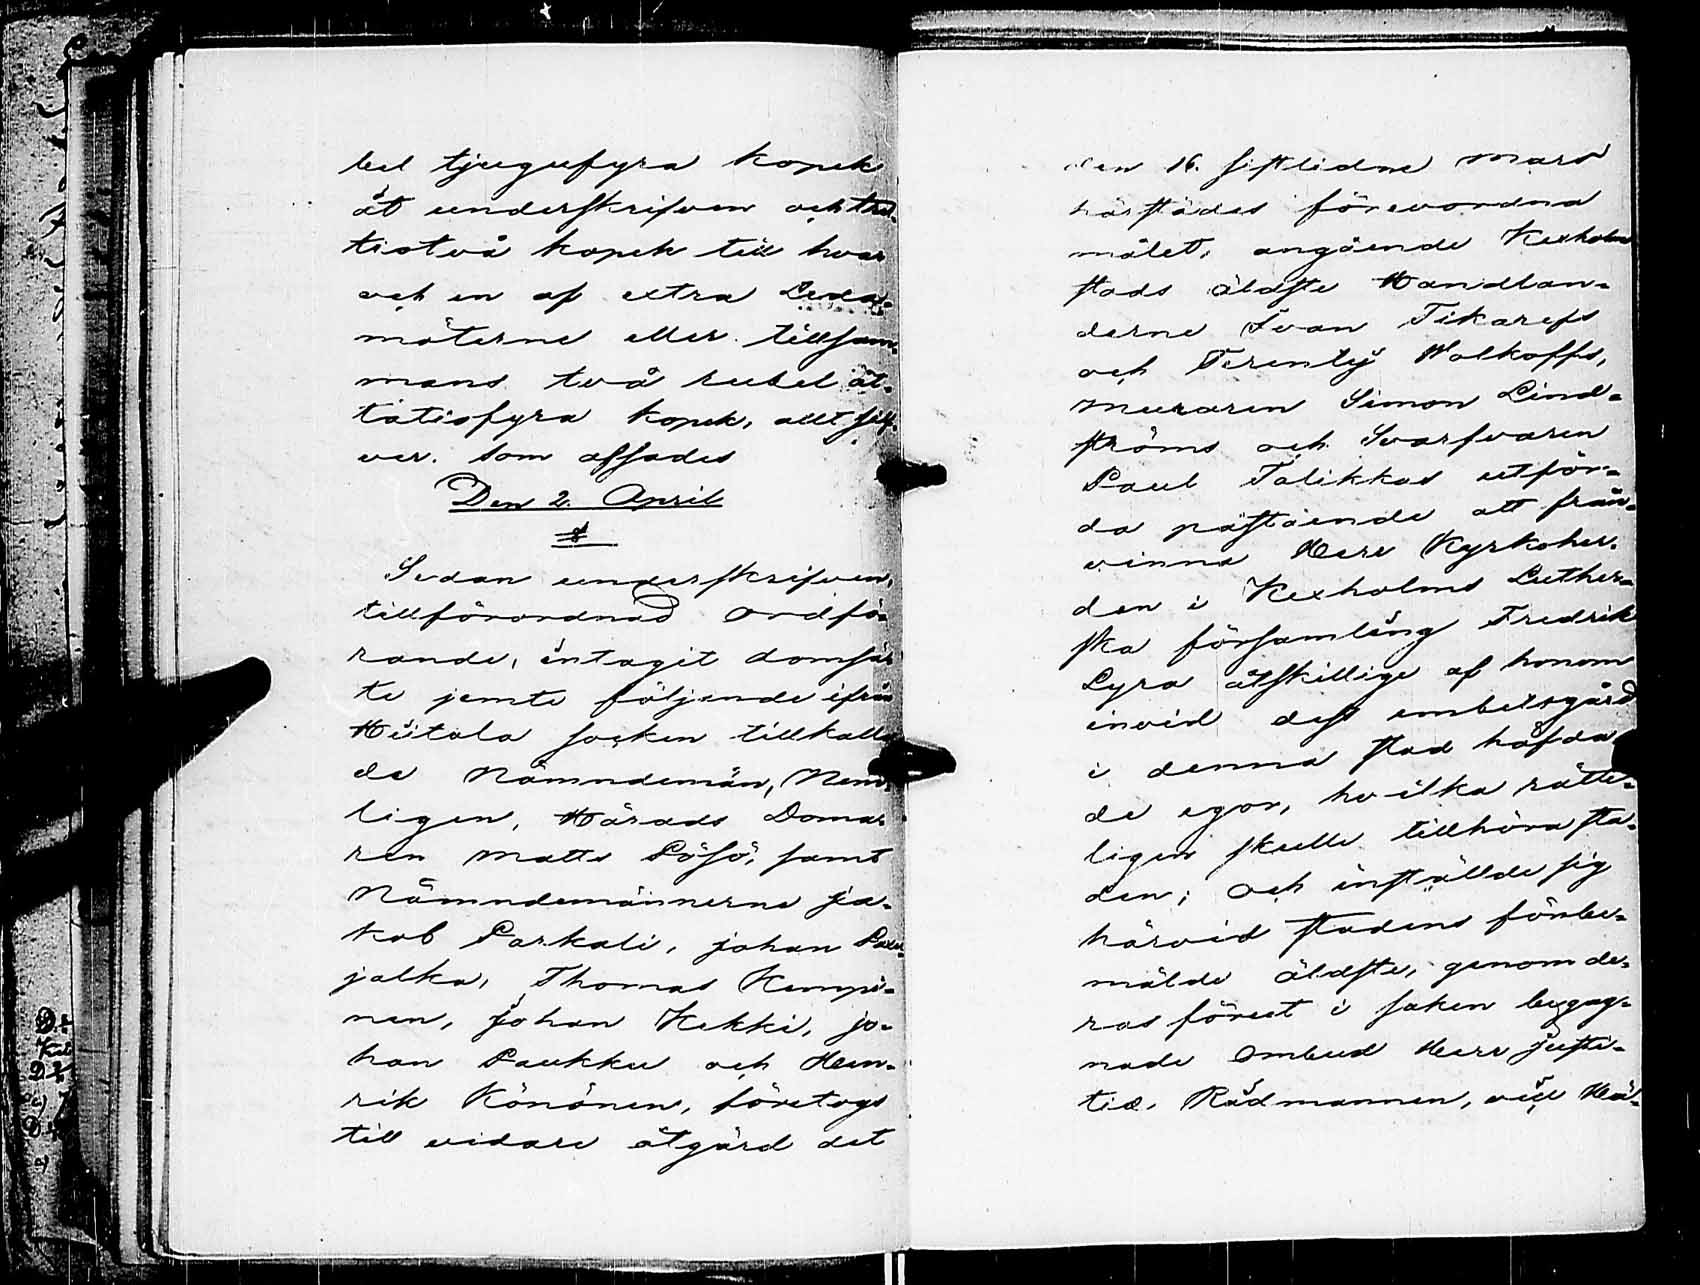 bel tjugufyra kopek
åt underskrifven och tret-
tiotvå kopek till hvar
och en af extra Leda-
möterne eller tillsam-
mans två rubel åt-
tatiofyra kopek, allt silf-
ver. som afsades
Den 2. April
Sedan underskrifven,
tillförordnad ordfö-
rande, intagit domsä-
te jemte följande ifrån
Hiitola socken tillkalla-
de Nämndemän, Nem-
ligen, Härads Doma-
ren Matts Pösö, samt
Nämndemännerne Ja-
kob Parkali, Johan
jalka, Thomas Kempi-
nen, Johan Kekki, Jo-
han Paukku och Hen-
rik Könönen, företogs
till vidare åtgärd det
den 16. sistlidne Mars
härstädes förevordna
målet, angående Kexholms
stads äldste Handlan-
derne Ivan Tikareffs
och Terentij Wolkoffs,
Muraren Simon Lind-
ströms och Svarfvaren
Paul Talikkas utför-
da påstående att från-
vinna Herr Kyrkoher-
den i Kexholms Luther-
ska församling Fredrik
Lyra åtskillige af honom
invid dess embetsgård
i denna stad häfda-
de egor, hvilka rätte-
ligen skulle tillhöra sta-
den; och inställde sig
härvid stadens förbe-
mälde äldste, genom de-
ras förut i saken begag-
nade Ombud Herr Justi-
tiæ Rådmannen, vice Hä-